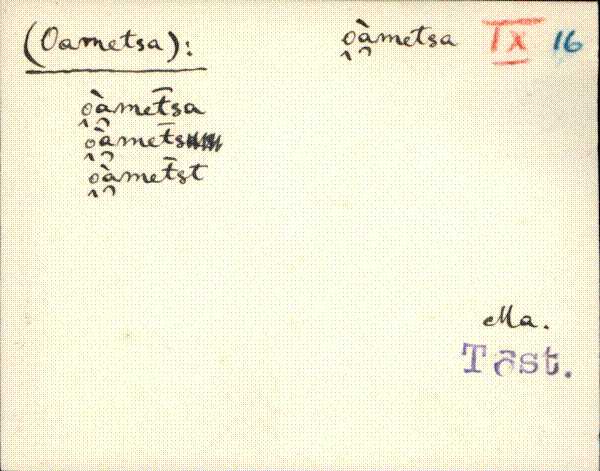 (Oametsa): o̭à̯metsa IX 16
o̭à̯met̄sa
o̭à̯met̄s
o̭à̯met̄st
Ma.
Tõst.